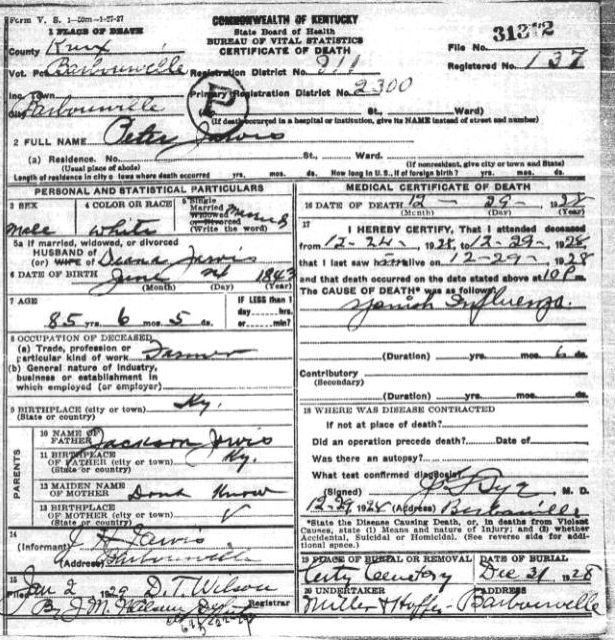 Form V. S. 1-50m-1-27-27
COMMONWEALTH OF KENTUCKY
State Board of Health
BUREAU OF VITAL STATISTICS
CERTIFICATE OF DEATH
1 PLACE OF DEATH
County Knox
File No. 31372
Vot. Barbourville Registration District No. 911
Registered No. 137
Inc. Town Primary Registration District No. 2300
Barbourville
P
St., Ward)
(If death occurred in a hospital or institution, give its NAME instead of street and number)
2 FULL NAME Peter Jarvis
(a) Residence. No. St., Ward.
(Usual place of abode) (If nonresident, give city or town and State)
Length of residence in city or town where death occurred yrs. mos. ds. How long in U. S., if of foreign birth? yrs. mos. ds.
PERSONAL AND STATISTICAL PARTICULARS
3 SEX Male
4 COLOR OR RACE white
5 Single Married Widowed or Divorced (Write the word) Married
5a If married, widowed, or divorced
HUSBAND of
(or) WIFE of Diana Jarvis
6 DATE OF BIRTH June 24 1843
(Month) (Day) (Year)
7 AGE
85 yrs. 6 mos. 5 ds.
IF LESS than 1
day, hrs.
or min?
8 OCCUPATION OF DECEASED
(a) Trade, profession or
particular kind of work Farmer
(b) General nature of industry,
business or establishment in
which employed (or employer)
9 BIRTHPLACE (city or town) Ky.
(State or country)
PARENTS
10 NAME OF
FATHER Jackson Jarvis
11 BIRTHPLACE
OF FATHER (city or town) Ky.
(State or country)
12 MAIDEN NAME
OF MOTHER Dont Know
13 BIRTHPLACE
OF MOTHER (city or town)
(State or country)
14
(Informant) J. H. Jarvis
(Address) Barbourville
15
Filed Jan 2 1929 D. T. Wilson
By J. M. Wilson Registrar
MEDICAL CERTIFICATE OF DEATH
16 DATE OF DEATH 12 - 29 - 1928
(Month) (Day) (Year)
17
I HEREBY CERTIFY, That I attended deceased
from 12-24-, 1928, to 12-29-, 1928,
that I last saw him alive on 12-29-, 1928
and that death occurred on the date stated above at 10 P m.
The CAUSE OF DEATH* was as follows:
Spanish Influenza.
(Duration) yrs. mos. 6 ds.
Contributory
(Secondary)
(Duration) yrs. mos. ds.
18 WHERE WAS DISEASE CONTRACTED
If not at place of death?
Did an operation precede death? Date of
Was there an autopsy?
What test confirmed diagnosis?
(Signed) Dye M. D.
12-29 1928 (Address) Barbourville
*State the Disease Causing Death, or, in deaths from Violent
Causes, state (1) Means and nature of Injury; and (2) whether
Accidental, Suicidal or Homicidal. (See reverse side for addi-
tional space.)
19 PLACE OF BURIAL OR REMOVAL
City Cemetery
DATE OF BURIAL
Dec 31 1928
20 UNDERTAKER
Miller &
Barbourville